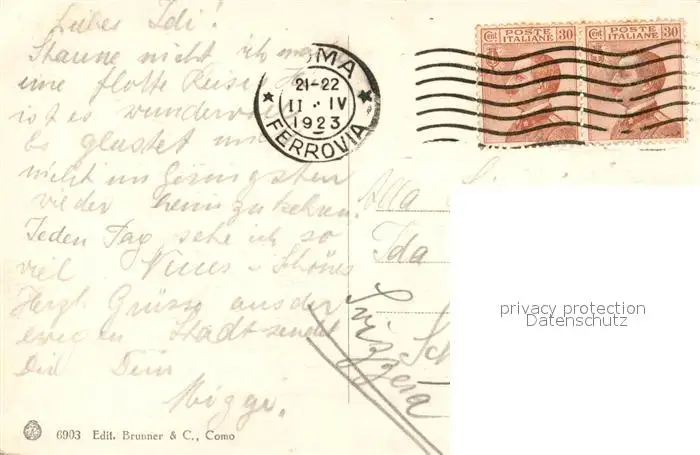 Liebes Idi!
Staune nicht ich ma
eine flotte Reise. H
ist es wundervo
Es glustet mi
nicht im Geringsten
wieder heimzukehren.
Jeden Tag sehe ich so
viel Neues u. Schönes
Herzl. Grüsse aus der
ewigen Stadt sendet
Dir Dein
Miggi.
6903 Edit. Brunner & C., Como
ROMA
21-22
II · IV
1923
FERROVIA
Cent POSTE ITALIANE 30
Cent POSTE ITALIANE 30
Alla
Ida
Sch
Svizzera
privacy protection
Datenschutz